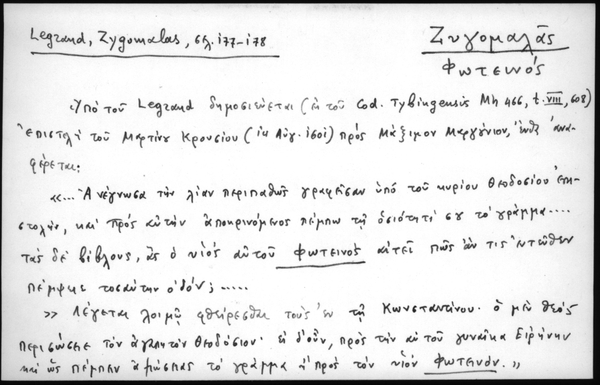 Legrand, Zygomalas, σελ. 177-178
Ζυγομαλᾶς
Φωτεινός
Ὑπὸ τοῦ Legrand δημοσιεύεται (ἐκ τοῦ Cod. Tybingensis Mh 466, t. VIII, 608)
ἐπιστολὴ τοῦ Μαρτίνου Κρουσίου (ἐκ Αὐγ. 1601) πρὸς Μάξιμον Μαργούνιον, ἔνθα ἀνα-
φέρεται:
«... Ἀνέγνωσα τὴν λίαν περιπαθῶς γραφεῖσαν ὑπὸ τοῦ κυρίου Θεοδοσίου ἐπι-
στολήν, καὶ πρὸς αὐτὴν ἀποκρινόμενος πέμπω τῇ ὁσιότητί σου τὸ γράμμα....
τὰς δὲ βίβλους, ἃς ὁ υἱὸς αὐτοῦ Φωτεινὸς αἰτεῖ πῶς ἄν τις ἐντεῦθεν
πέμψῃ τοσαύτην ὁδόν; .....
» Λέγεται λοιμῷ φθείρεσθαι τοὺς ἐν τῇ Κωνσταντίνου· ὁ μὲν θεὸς
περισώσειε τὸν ἀγαπητὸν Θεοδόσιον· εἰ δ' οὖν, πρὸς τὴν αὐτοῦ γυναῖκα Εἰρήνην
καὶ πέμπειν τὸ γράμμα ἢ πρὸς τὸν υἱὸν Φωτεινόν.»